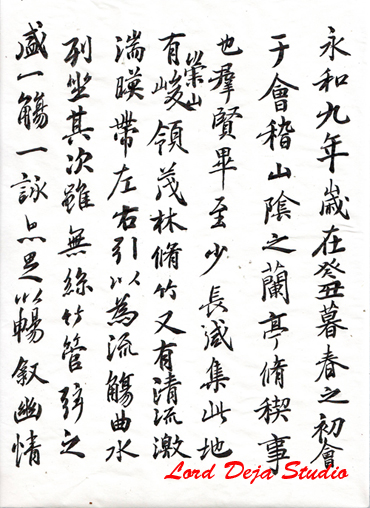 永和九年歲在癸丑暮春之初會
于會稽山陰之蘭亭脩稧事
也羣賢畢至少長咸集此地
有崇山峻領茂林脩竹又有清流激
湍暎帶左右引以為流觴曲水
列坐其次雖無絲竹管弦之
盛一觴一詠亦足以暢敘幽情
Lord Deja Studio